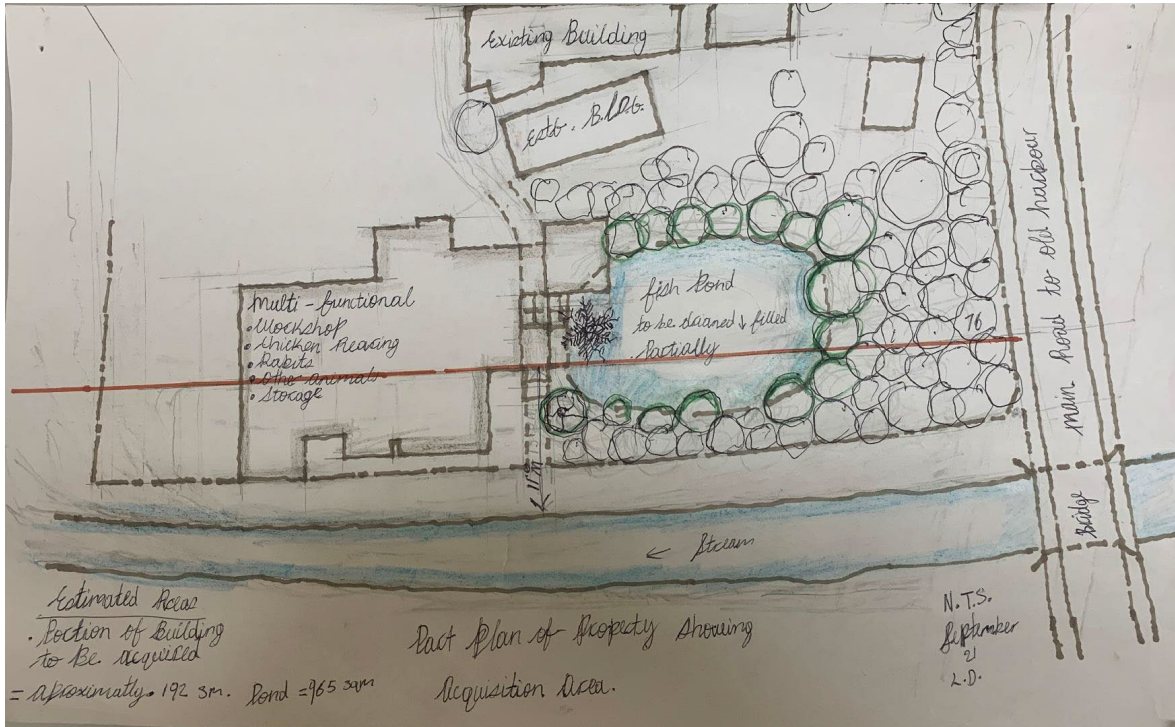 Existing Building
Estb. B.L.D.G.
Multi-functional
• Workshop
• Chicken Rearing
• Rabits
• Othe animals
• Storage
fish Pond
to be drained ↓ filled
Partially
76
Main Road to old harbour
Bridge
← Stream
Estimated Areas
• Portion of Building
to Be acquired
= Aproximatly. 192 sm. Pond = 965 sqm
Part Plan of Property Showing
Acquisition Area.
N.T.S.
September
21
L.D.